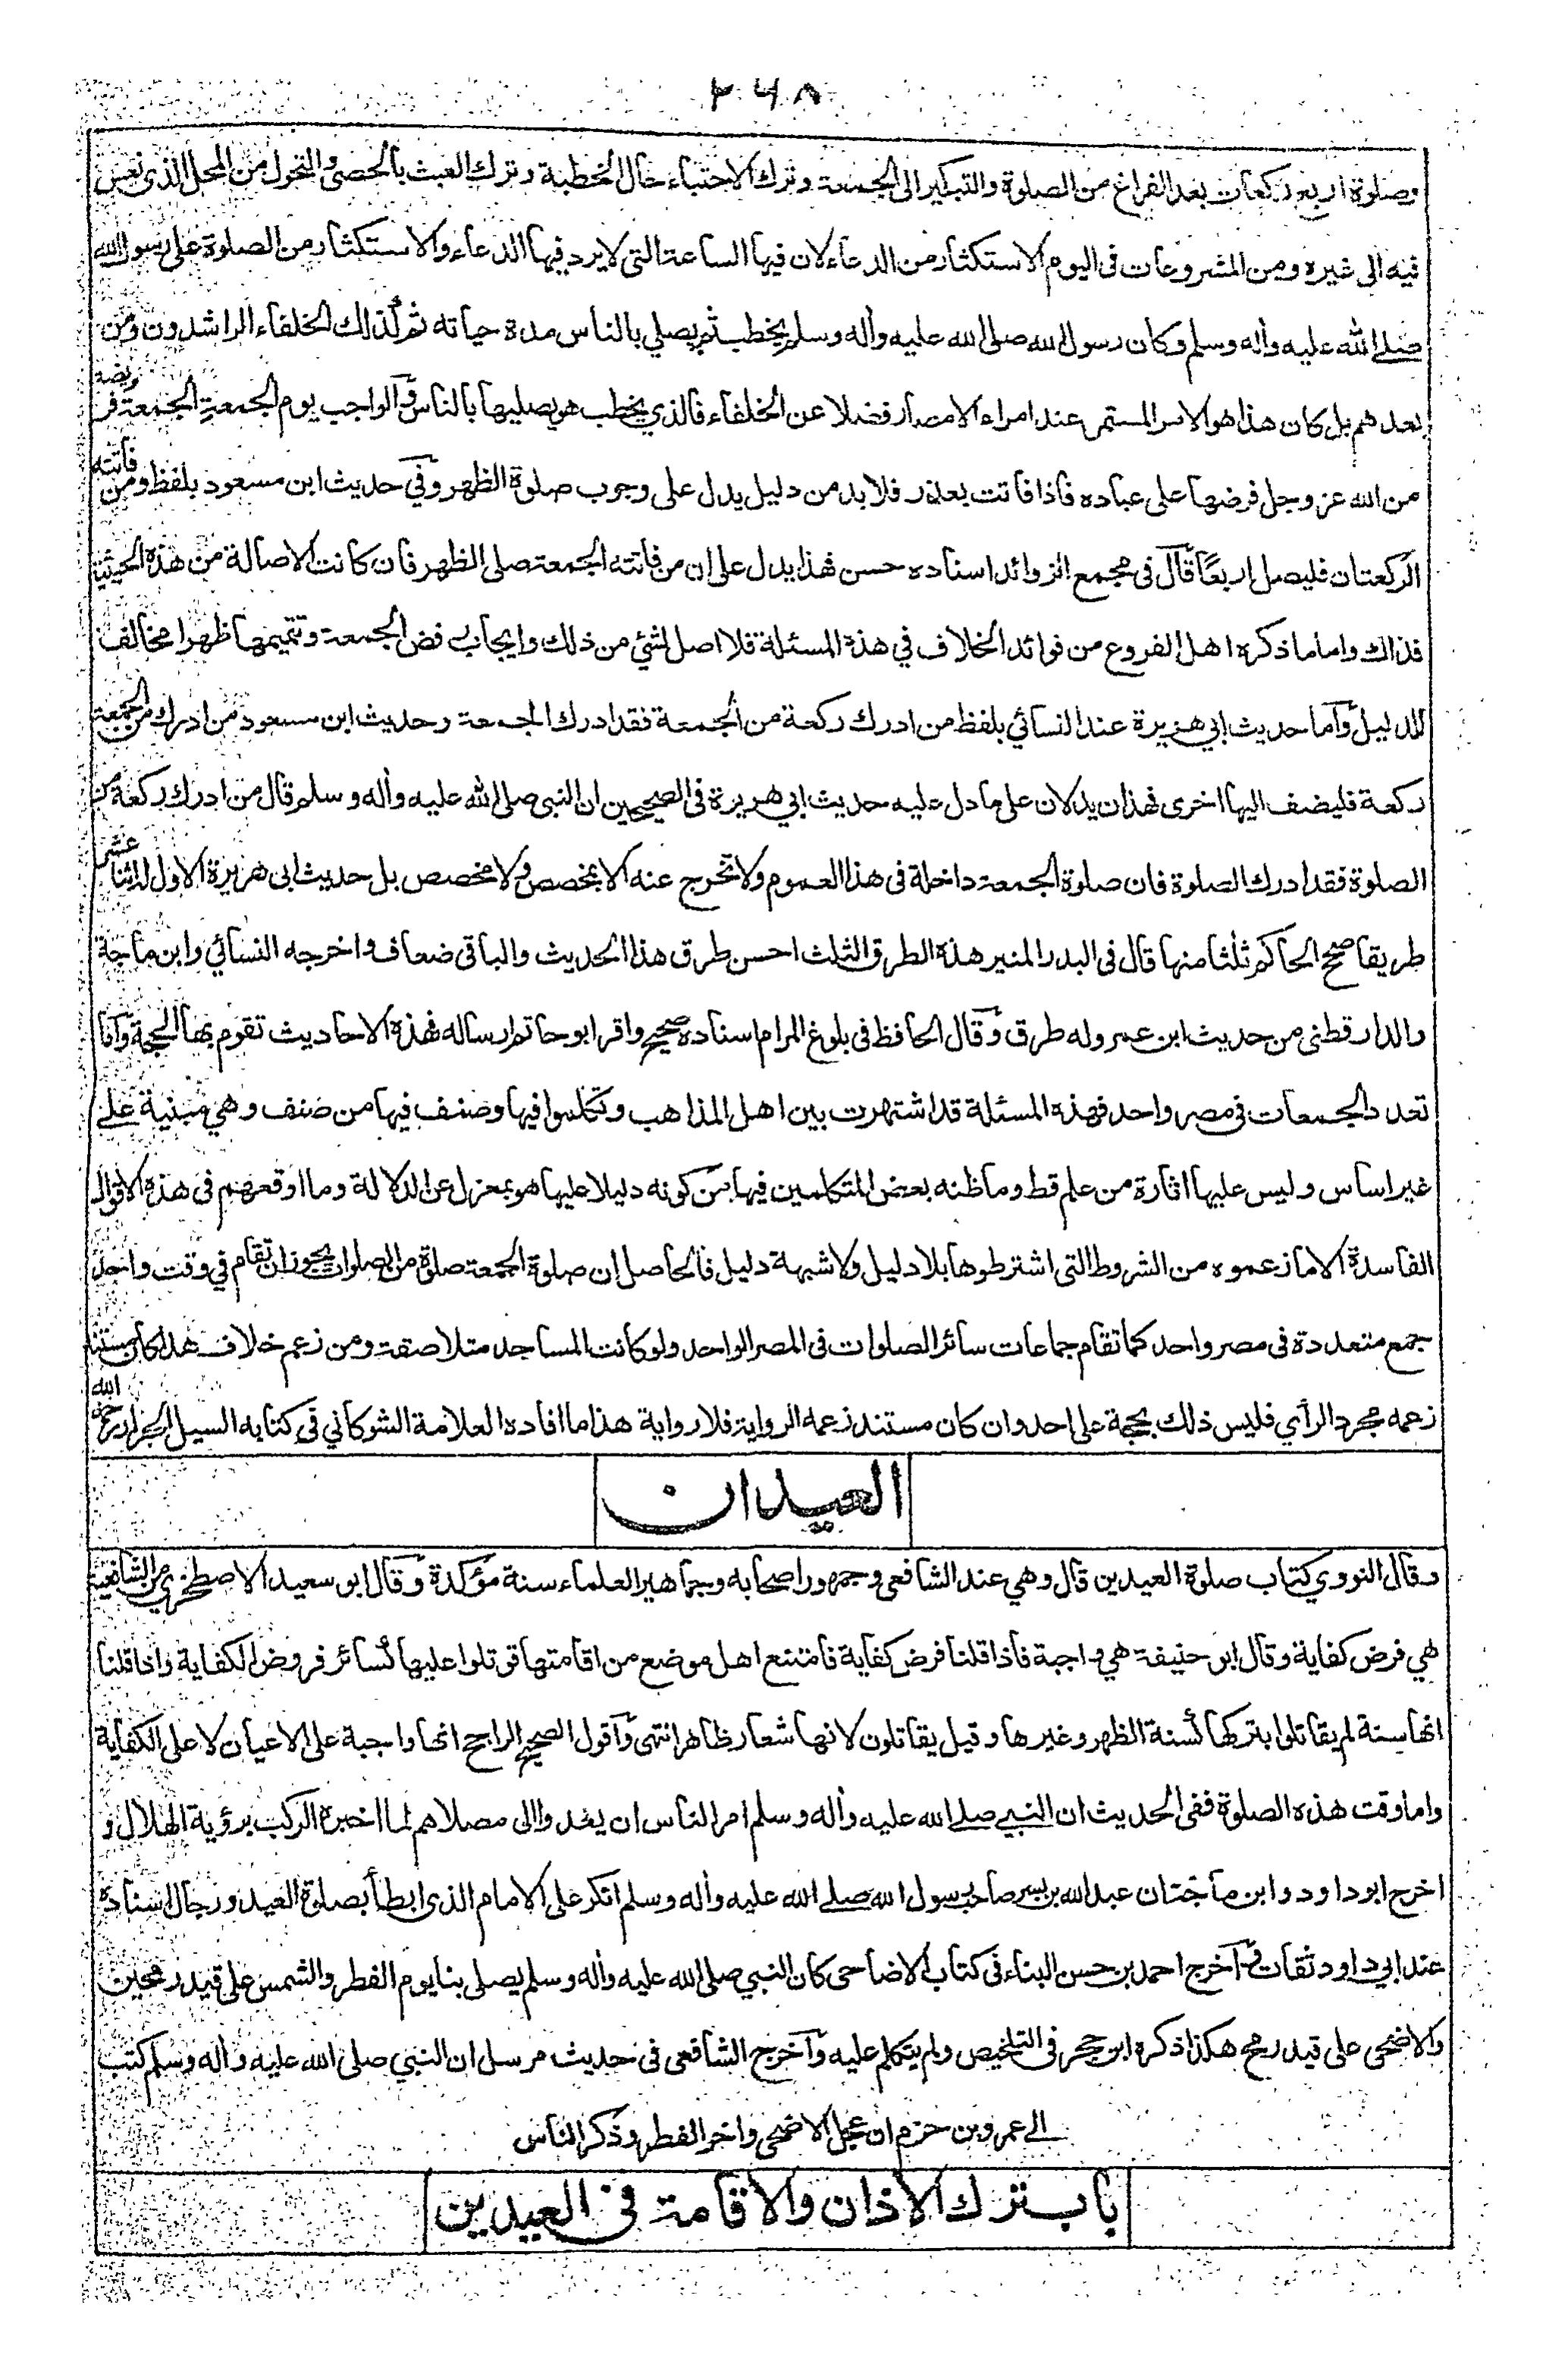 ٢٦٨
وصلوة اربع ركعات بعد الفراغ من الصلوة والتبكير الى الجمعة وترك الاحتباء حال الخطبة وترك العبث بالحصى والتحول من المحل الذى نعس
فيه الى غيره ومن المشروعات فى اليوم الاستكثار من الدعاء لان فيها الساعة التى لا يرد فيها الدعاء والاستكثار من الصلوة على رسول الله
صلى الله عليه وأله وسلم وكان رسول الله صلى الله عليه وأله وسلم يخطب ثم يصلي بالناس مدة حياته ثم كذلك الخلفاء الراشدون ومن
بعدهم بل كان هذا هو الامر المستمر عند امراء الامصار فضلا عن الخلفاء فالذي يخطب هو يصليها بالناس والواجب يوم الجمعة الجمعة فريضة
من الله عز وجل فرضها على عباده فاذا فاتت بعذر فلا بد من دليل يدل على وجوب صلوة الظهر وفي حديث ابن مسعود بلفظ ومن فاتته
الركعتان فليصل اربعًا قال فى مجمع الزوائد اسناده حسن فهذا يدل على ان من فاتته الجمعة صلى الظهر فان كانت الاصالة من هذه الحيثية
فذاك واما ما ذكره اهل الفروع من فوائد الخلاف في هذه المسئلة فلا اصل لشئ من ذلك وايجاب رفض الجمعة وتتميمها ظهرا مخالف
للدليل وأما حديث ابي هريرة عند النسائي بلفظ من ادرك ركعة من الجمعة فقد ادرك الجمعة وحديث ابن مسعود من ادرك من الجمعة
ركعة فليضف اليها اخرى فهذان يدلان على ما دل عليه حديث ابي هريرة فى الصحيحين ان النبى صلى الله عليه وأله وسلم قال من ادرك ركعة من
الصلوة فقد ادرك الصلوة فان صلوة الجمعة داخلة فى هذا العموم ولا تخرج عنه الا بمخصص ولا مخصص بل حديث ابى هريرة الاول له اثنا عشر
طريقا صحح الحاكم ثلثا منها قال فى البدر المنير هذه الطرق الثلث احسن طرق هذا الحديث والباقى ضعاف واخرجه النسائي وابن ماجة
والدارقطنى من حديث ابن عمر وله طرق وقال الحافظ فى بلوغ المرام اسناده صحيح واقر ابو حاتم ارساله فهذه الاحاديث تقوم بها الحجة وأما
تعدد الجمعات فى مصر واحد فهذه المسئلة قد اشتهرت بين اهل المذاهب وتكلموا فيها وصنف فيها من صنف وهي مبنية على
غير اساس وليس عليها اثارة من علم قط وما ظنه بعض المتكلمين فيها من كونه دليلا عليها هو بمعزل عن الدلالة وما اوقعهم فى هذه الاقوال
الفاسدة الا ما زعموه من الشروط التى اشترطوها بلا دليل ولا شبهة دليل فالحاصل ان صلوة الجمعة صلوة من الصلوات يجوز ان تقام في وقت واحد
جمع متعددة فى مصر واحد كما تقام جماعات سائر الصلوات فى المصر الواحد ولو كانت المساجد متلاصقة ومن زعم خلاف هذا كان مستند
زعمه مجرد الرأي فليس ذلك بحجة على احد وان كان مستند زعمه الرواية فلا رواية هذا ما افاده العلامة الشوكاني فى كتابه السيل الجرار رحمه الله
العيدان
وقال النووي كتاب صلوة العيدين قال وهي عند الشافعى وجمهور اصحابه وجماهير العلماء سنة مؤكدة وقال ابو سعيد الاصطخري من الشافعية
هي فرض كفاية وقال ابو حنيفة هي واجبة فاذا قلنا فرض كفاية فامتنع اهل موضع من اقامتها قوتلوا عليها كسائر فروض الكفاية واذا قلنا
انها سنة لم يقاتلوا بتركها كسنة الظهر وغيرها وقيل يقاتلون لانها شعار ظاهر انتهى وأقول الصحيح الراجح انها واجبة على الاعيان لا على الكفاية
واما وقت هذه الصلوة ففى الحديث ان النبي صلى الله عليه وأله وسلم امر الناس ان يغدوا الى مصلاهم لما اخبره الركب برؤية الهلال و
اخرج ابو داود وابن ماجة ان عبد الله بن بسر صاحب رسول الله صلى الله عليه وأله وسلم انكر على الامام الذى ابطأ بصلوة العيد ورجال اسناده
عند ابي داود ثقات وأخرج احمد بن حسن البناء فى كتاب الاضاحى كان النبي صلى الله عليه وأله وسلم يصلى بنا يوم الفطر والشمس على قيد رمحين
والاضحى على قيد رمح هكذا ذكره ابن حجر فى التلخيص ولم يتكلم عليه وأخرج الشافعى فى حديث مرسل ان النبي صلى الله عليه وأله وسلم كتب
الى عمرو بن حزم ان عجل الاضحى واخر الفطر وذكر الناس
باب ترك الأذان والأقامة فى العيدين